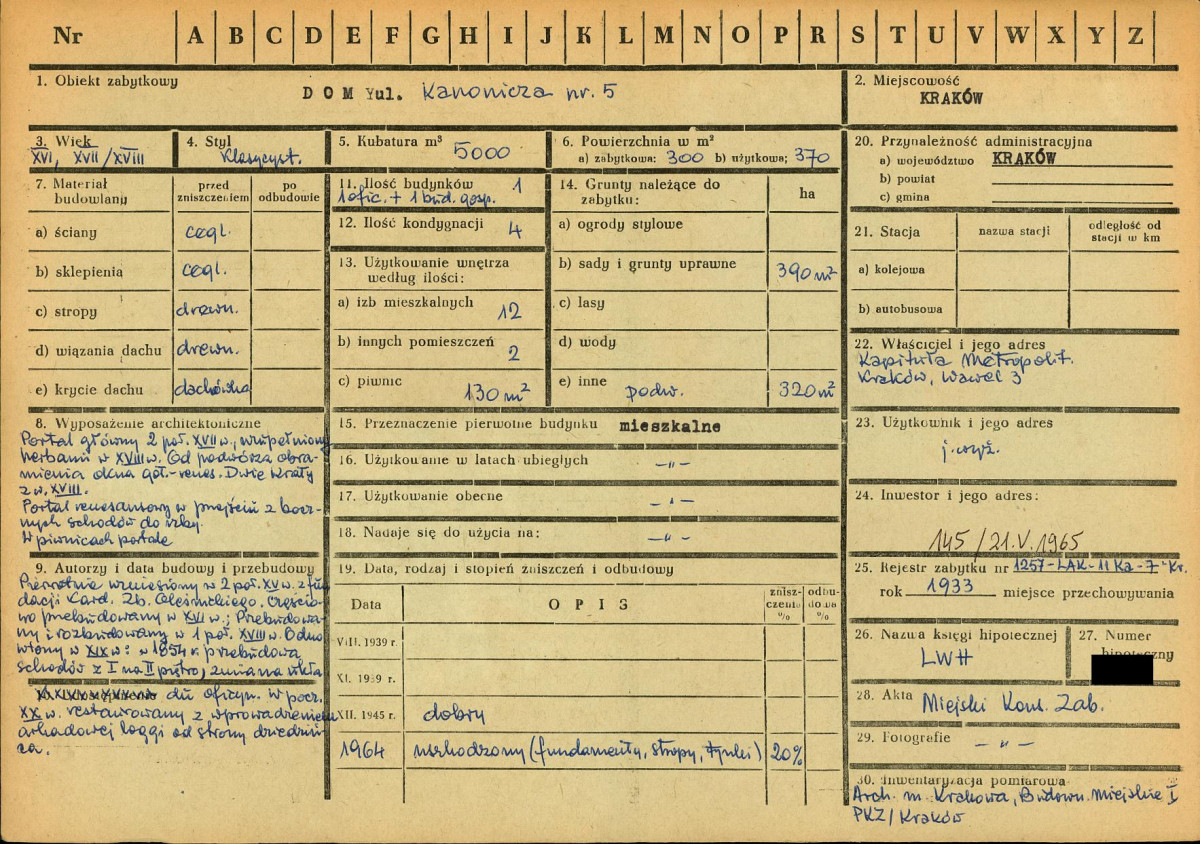 Nr A B C D E F G H I J K L M N O P R S T U V W X Y Z
1. Obiekt zabytkowy
DOM ul. Kanonicza nr. 5
2. Miejscowość
KRAKÓW
3. Wiek
XVI, XVII/XVIII
4. Styl
Klasycyst.
5. Kubatura m³ 5000
6. Powierzchnia w m²
a) zabytkowa: 300 b) użytkowa: 370
7. Materiał budowlany
przed zniszczeniem
po odbudowie
a) ściany cegl.
b) sklepienia cegl.
c) stropy drewn.
d) wiązania dachu drewn.
e) krycie dachu dachówka
8. Wyposażenie architektoniczne
Portal główny 2 poł. XVII w., uzupełniony
herbami w XVIII w. Od podwórza obra-
mienia okna got.-renes. Dwie kraty
z w. XVIII.
Portal renesansowy w przejściu z bocz-
nych schodów do izby.
W piwnicach portale
9. Autorzy i data budowy i przebudowy
Pierwotnie wzniesiony w 2 poł. XV w. z fun
dacji Kard. Zb. Oleśnickiego. Częścio-
wo przebudowany w XVI w.; Przebudowa-
ny i rozbudowany w 1 poł. XVIII w. Odno
wiony w XIX w: w 1854 r. przebudowa
schodów z I na II piętro, zmiana ukła
du oficyn. W pocz.
XX w. restaurowany z wprowadzeniem
arkadowej loggi od strony dziedziń
ca.
11. Ilość budynków 1
1 ofic. + 1 bud. gosp.
12. Ilość kondygnacji 4
13. Użytkowanie wnętrza
według ilości:
a) izb mieszkalnych 12
b) innych pomieszczeń 2
c) piwnic 130 m²
14. Grunty należące do
zabytku:
ha
a) ogrody stylowe
b) sady i grunty uprawne 390 m²
c) lasy
d) wody
e) inne podw. 320 m²
15. Przeznaczenie pierwotne budynku mieszkalne
16. Użytkowanie w latach ubiegłych -"-
17. Użytkowanie obecne -"-
18. Nadaje się do użycia na: -"-
19. Data, rodzaj i stopień zniszczeń i odbudowy
Data
OPIS
znisz-
czenie
%
odbu-
dowa
%
VIII. 1939 r.
XI. 1939 r.
XII. 1945 r. dobry
1964 uszkodzony (fundamenty, stropy, tynki) 20%
20. Przynależność administracyjna
a) województwo KRAKÓW
b) powiat
c) gmina
21. Stacja
nazwa stacji
odległość od
stacji w km
a) kolejowa
b) autobusowa
22. Właściciel i jego adres
Kapituła Metropolit.
Kraków, Wawel 3
23. Użytkownik i jego adres
j. wyż.
24. Inwestor i jego adres:
145/21.V.1965
25. Rejestr zabytku nr 1257-LAK-11 Ka-7 Kr.
rok 1933 miejsce przechowywania
26. Nazwa księgi hipotecznej
LWH
27. Numer
hipoteczny
28. Akta Miejski Kons. Zab.
29. Fotografie -"-
30. Inwentaryzacja pomiarowa
Arch. m. Krakowa, Budown. Miejskie I
PKZ/Kraków